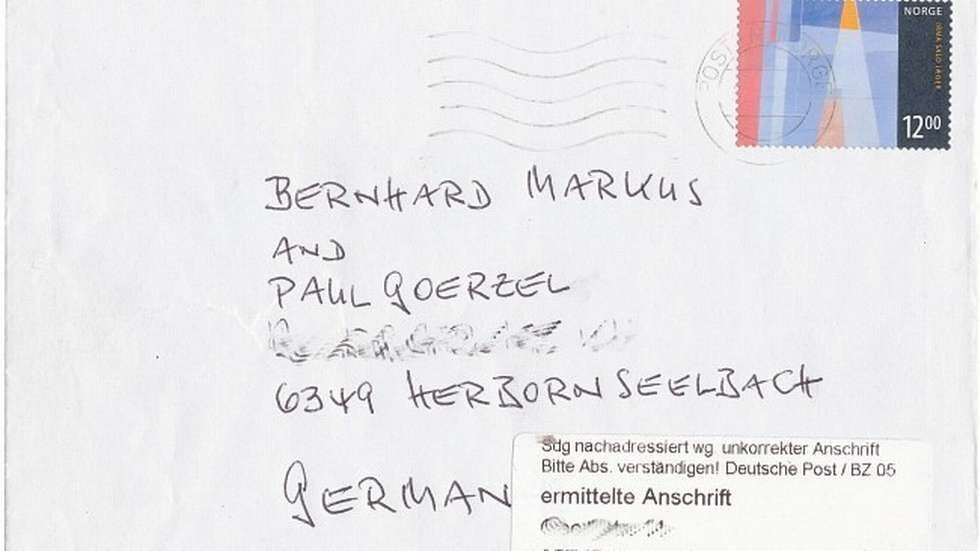 NORGE
IRMA SALO JÆGER
12 00
POST NORGE
BERNHARD MARKUS
AND
PAUL GOERZEL
6349 HERBORNSEELBACH
GERMAN
Sdg nachadressiert wg. unkorrekter Anschrift
Bitte Abs. verständigen! Deutsche Post / BZ 05
ermittelte Anschrift